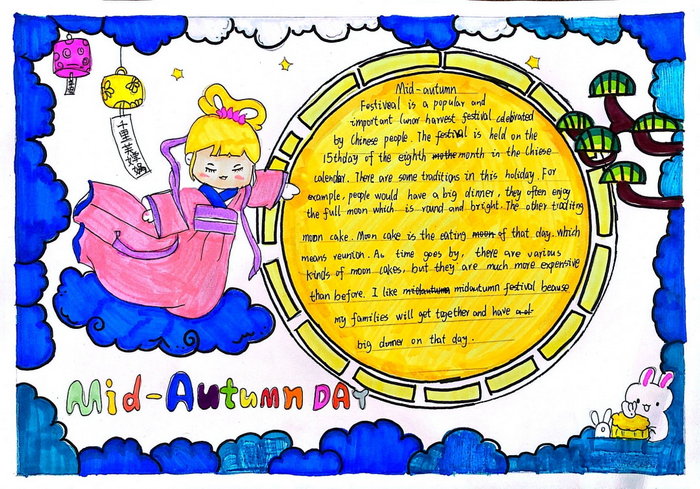 千里共婵娟
Mid-autumn
Festiveal is a popular and
important lunar harvest festival celebrated
by Chinese people. The festival is held on the
15thday of the eighth mothe month in the Chiese
calendar. There are some traditions in this holiday. For
example, people would have a big dinner, they often enjoy
the full moon which is round and bright. The other traditing
moon cake. Moon cake is the eating moon of that day. which
means reunion. As time goes by, there are various
kinds of moon cakes, but they are much more expensive
than before. I like midautumn midautumn festival because
my families will get together and have a
big dinner on that day.
Mid-Autumn DAY